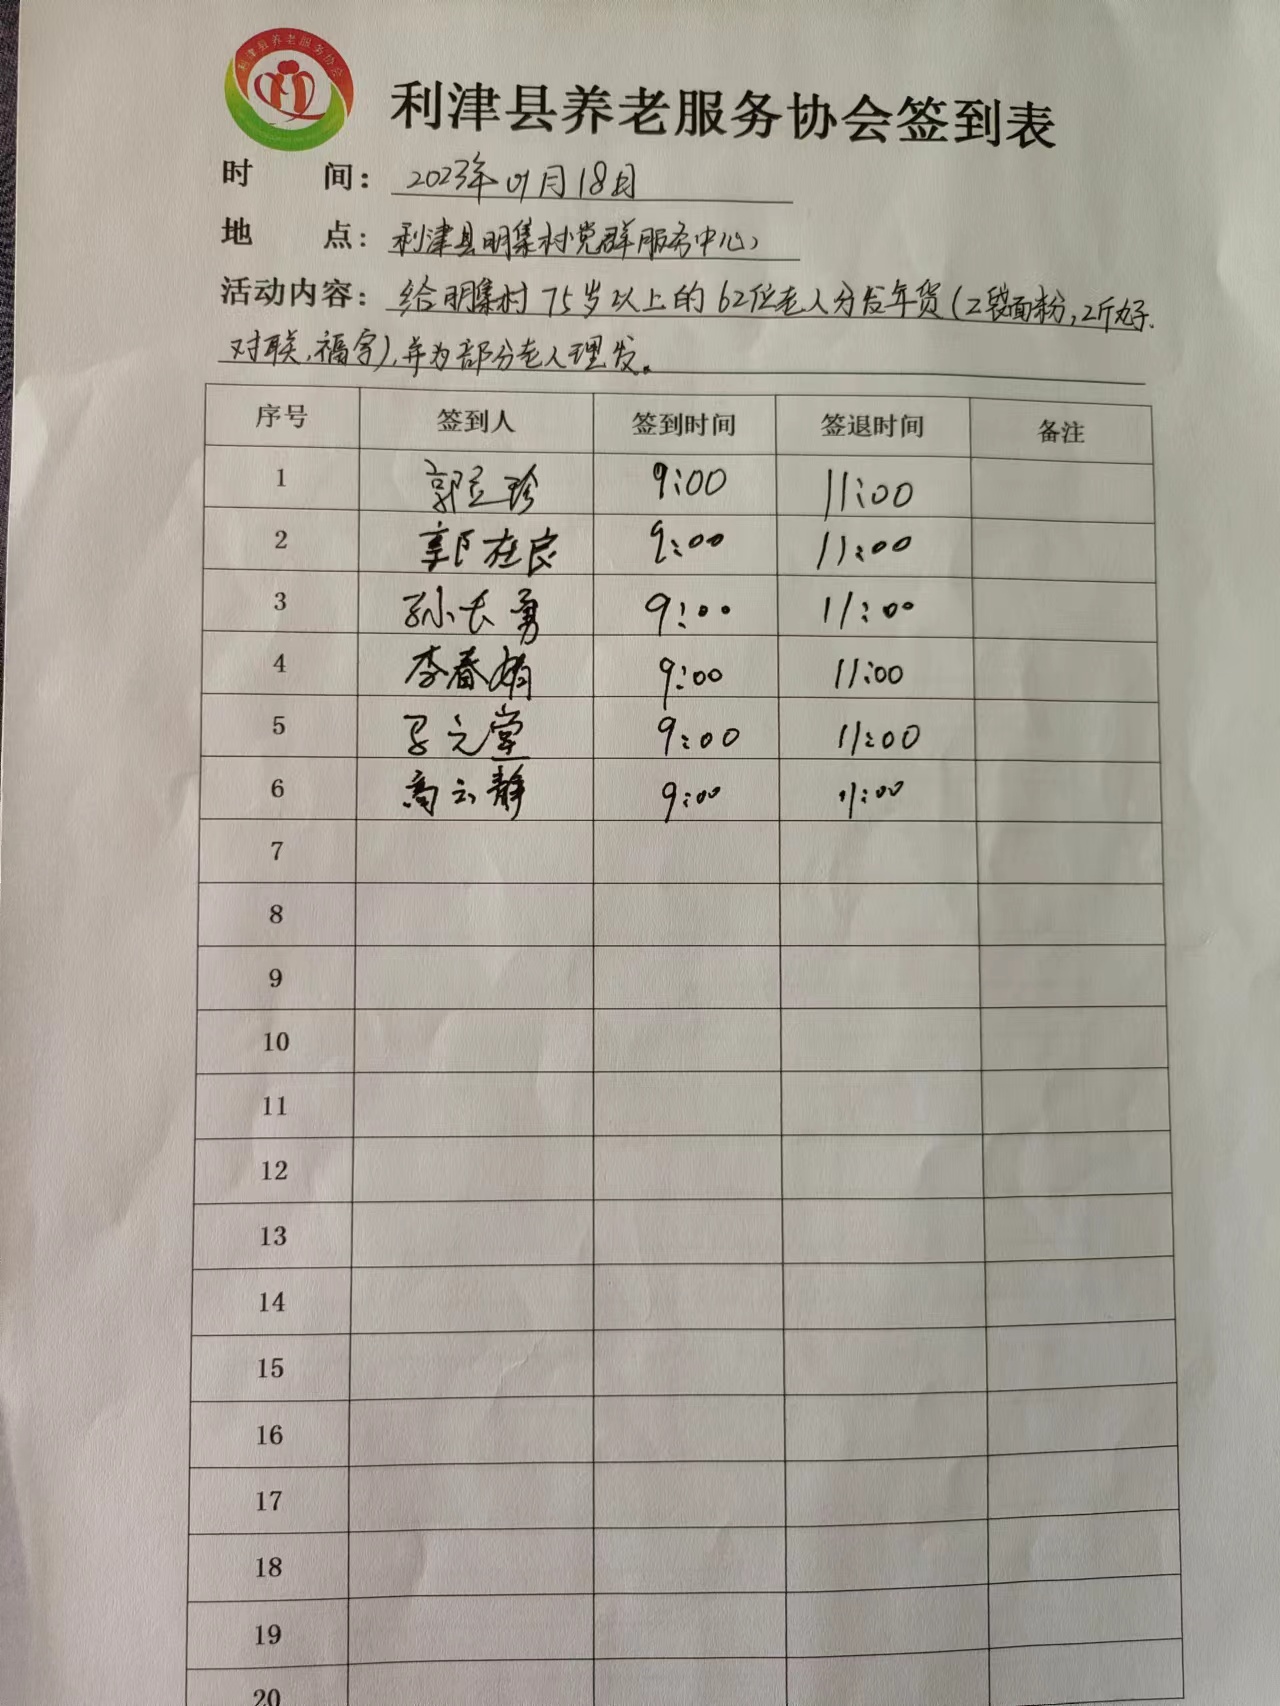 利津县养老服务协会
利津县养老服务协会签到表
时 间： 2023年01月18日
地 点： 利津县明集村党群服务中心
活动内容： 给明集村75岁以上的62位老人分发年货(2袋面粉,2斤丸子.
对联,福字),并为部分老人理发。
序号 签到人 签到时间 签退时间 备注
1 郭立珍 9:00 11:00
2 郭在良 9:00 11:00
3 孙长勇 9:00 11:00
4 李春娟 9:00 11:00
5 元堂 9:00 11:00
6 高云静 9:00 11:00
7
8
9
10
11
12
13
14
15
16
17
18
19
20